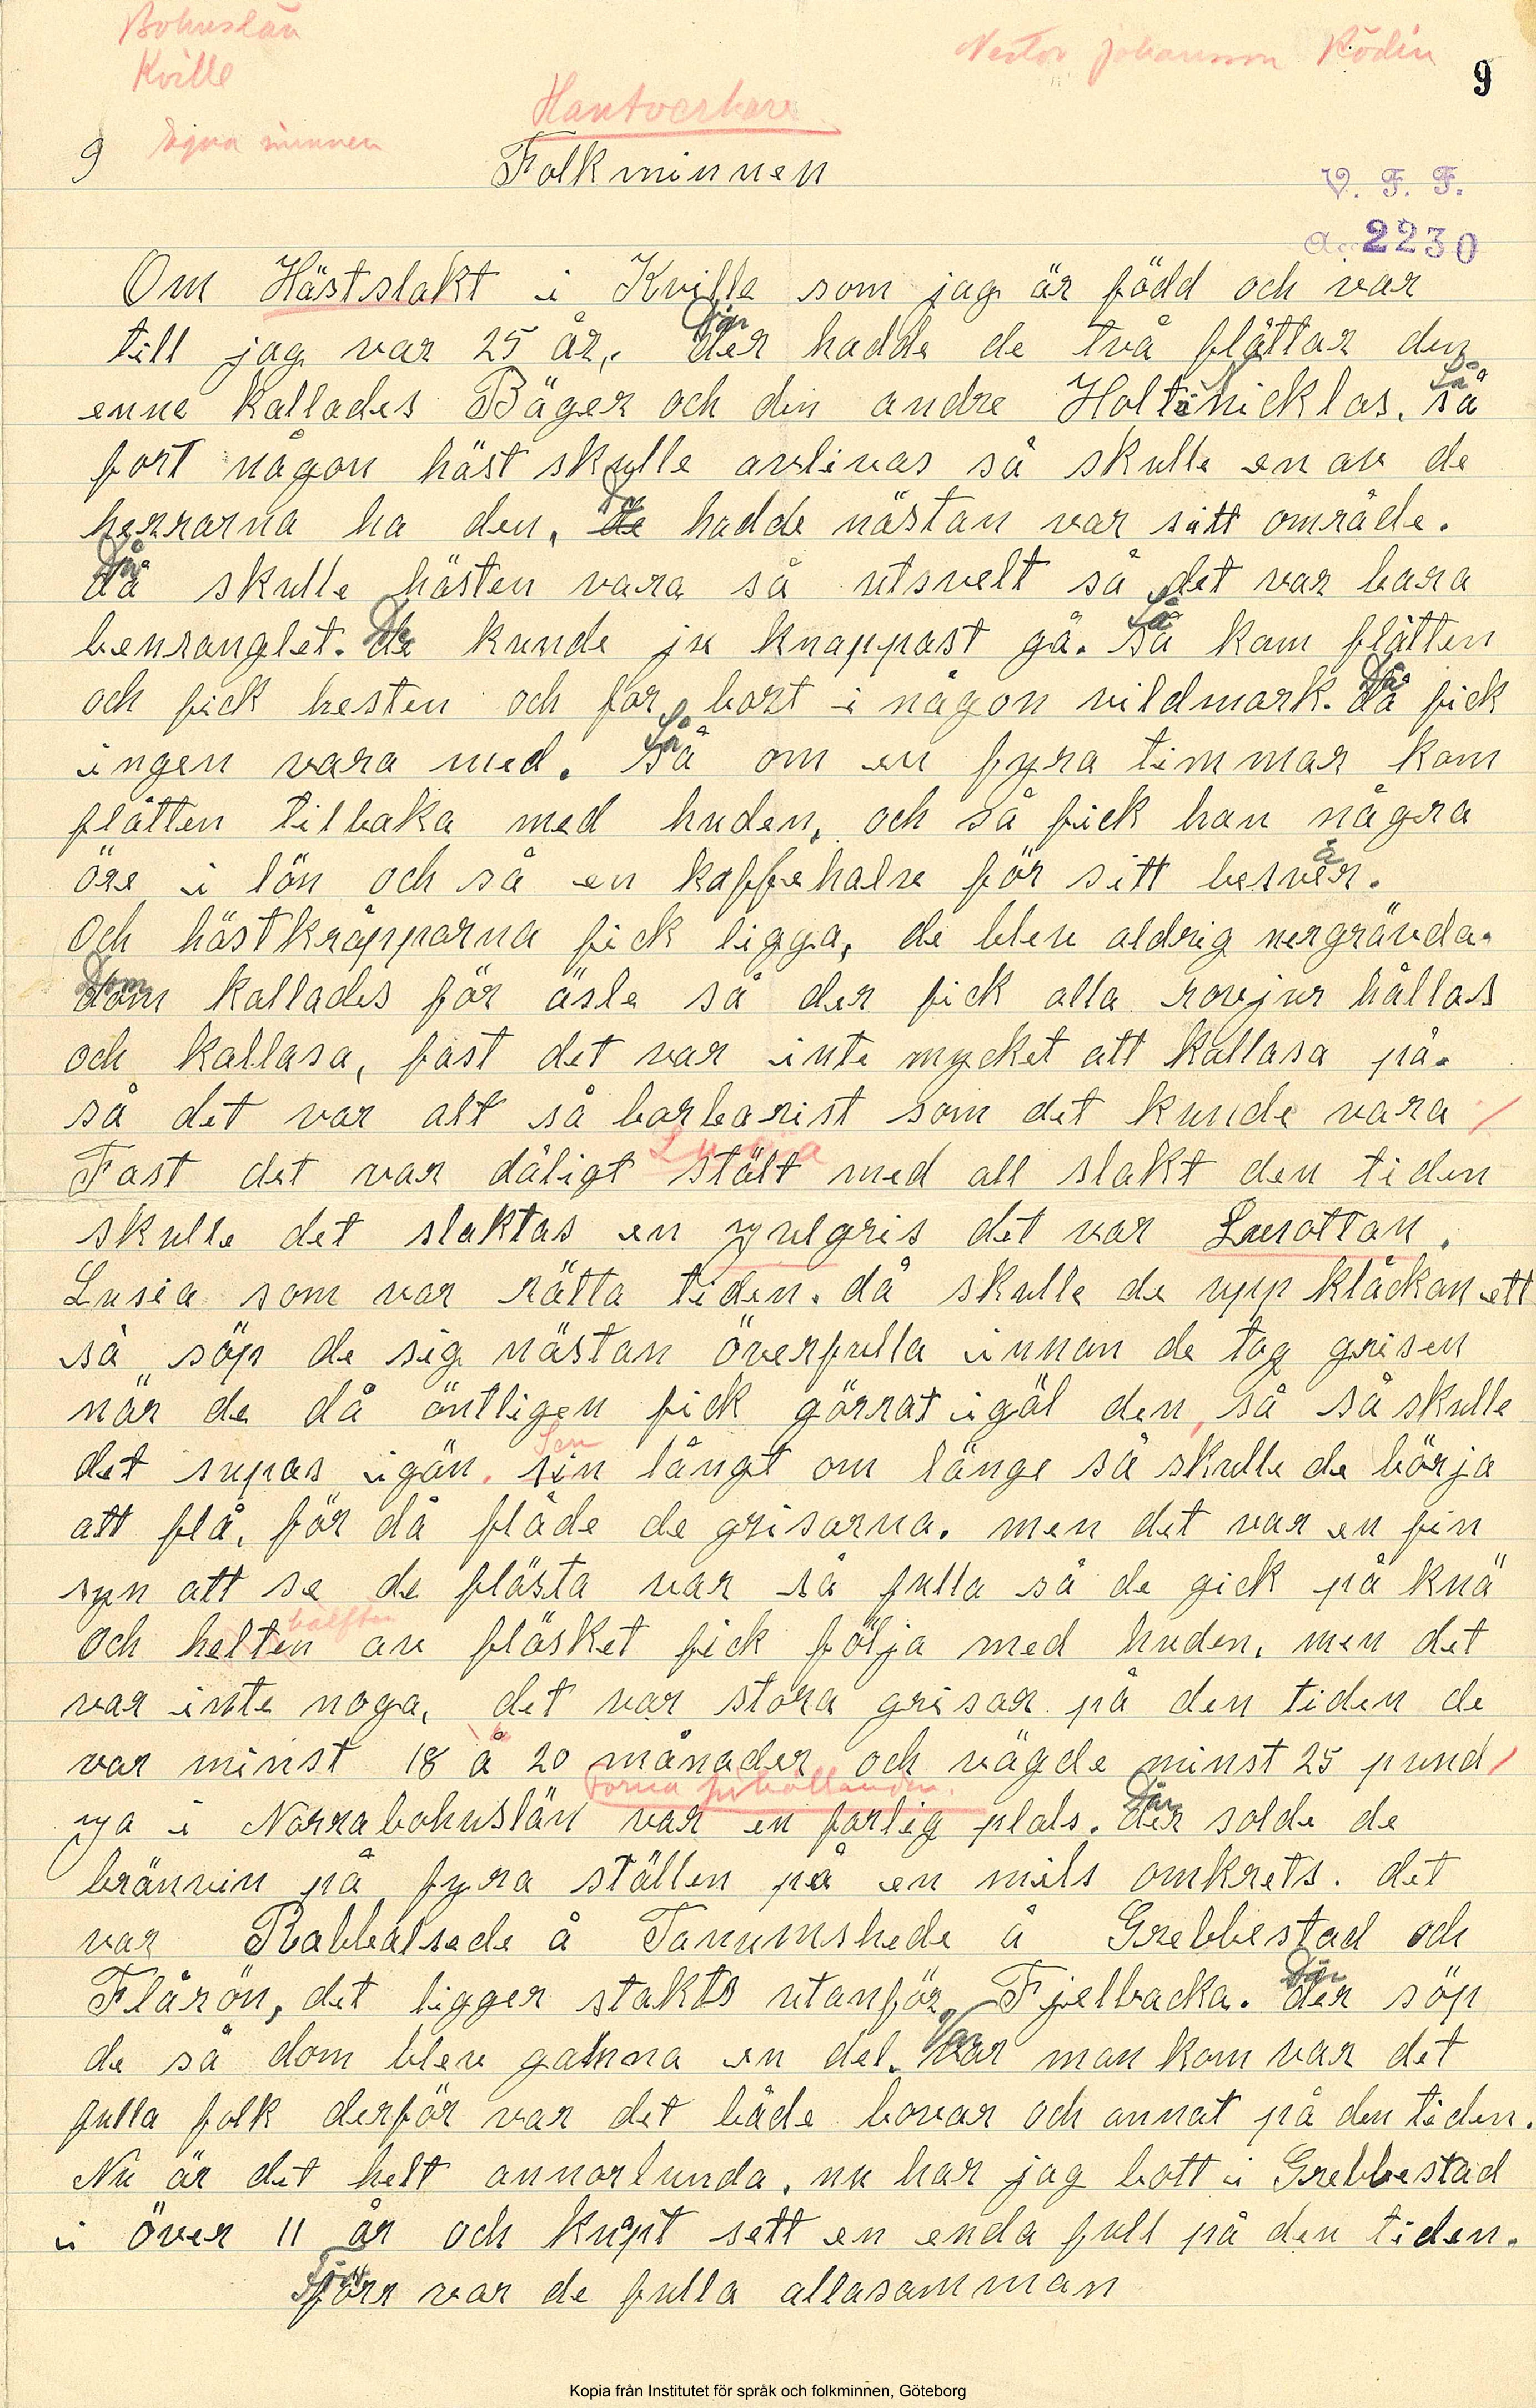 Bohuslän
Kville
Nestor Johansson Rödin
9
Hantverkare
9 Egna minnen
Folkminnen
V. F. F.
2230
Om Hästslakt i Kville som jag är född och var
till jag var 25 år. Där hadde de två flåttar den
enne kallades Bäger och din andre Holtenicklas. Så
fort någon häst skulle avlivas så skulle en av de
herrarna ha den. De hadde nästan var sitt område.
Då skulle hästen vara så utsvelt så det var bara
benranglet. De kunde ju knappast gå. Så kom flåtten
och fick hesten och for bort i någon vildmark. Då fick
ingen vara med. Så om en fyra timmar kom
flåtten tilbaka med huden, och så fick han några
öre i lön och så en kaffehalva för sitt besvär.
Och hästkråpparna fick ligga, de blev aldrig nergrävda.
Dom kallades för åsle så der fick alla rovjur hållas
och kallasa, fast det var inte mycket att kallasa på.
så det var alt så barbarist som det kunde vara /
Lucia
Fast det var dåligt stält med all slakt den tiden
skulle det slaktas en julgris det var Lusottan.
Lusia som var rätta tiden. då skulle de upp klåckan ett
så söp de sig nästan överfulla innan de tog grisen
när de då äntligen fick görrat igäl den, så så skulle
det supas igän. Sen långt om länge så skulle de börja
att flå, för då flåde de grisarna. men det var en fin
syn att se de flästa var så fulla så de gick på knä
hälften
och helten av fläsket fick följa med huden, men det
var inte noga, det var stora grisar på den tiden de
var minst 18 à 20 månader och vägde minst 25 pund /
Forna förhållanden.
ja i Norrabohuslän var en farlig plats. Där solde de
brännvin på fyra ställen på en mils omkrets. det
var Rabbalsede å Tanumshede å Grebbestad och
Flårön, det ligger strakts utanför Fjelbacka. Där söp
de så dom blev galnna en del. Var man kom var det
fulla folk derför var det både bovar och annat på den tiden.
Nu är det helt annorlunda. nu har jag bott i Grebbestad
i över 11 år och knapt sett en enda full på den tiden.
Förr var de fulla allasamman
Kopia från Institutet för språk och folkminnen, Göteborg